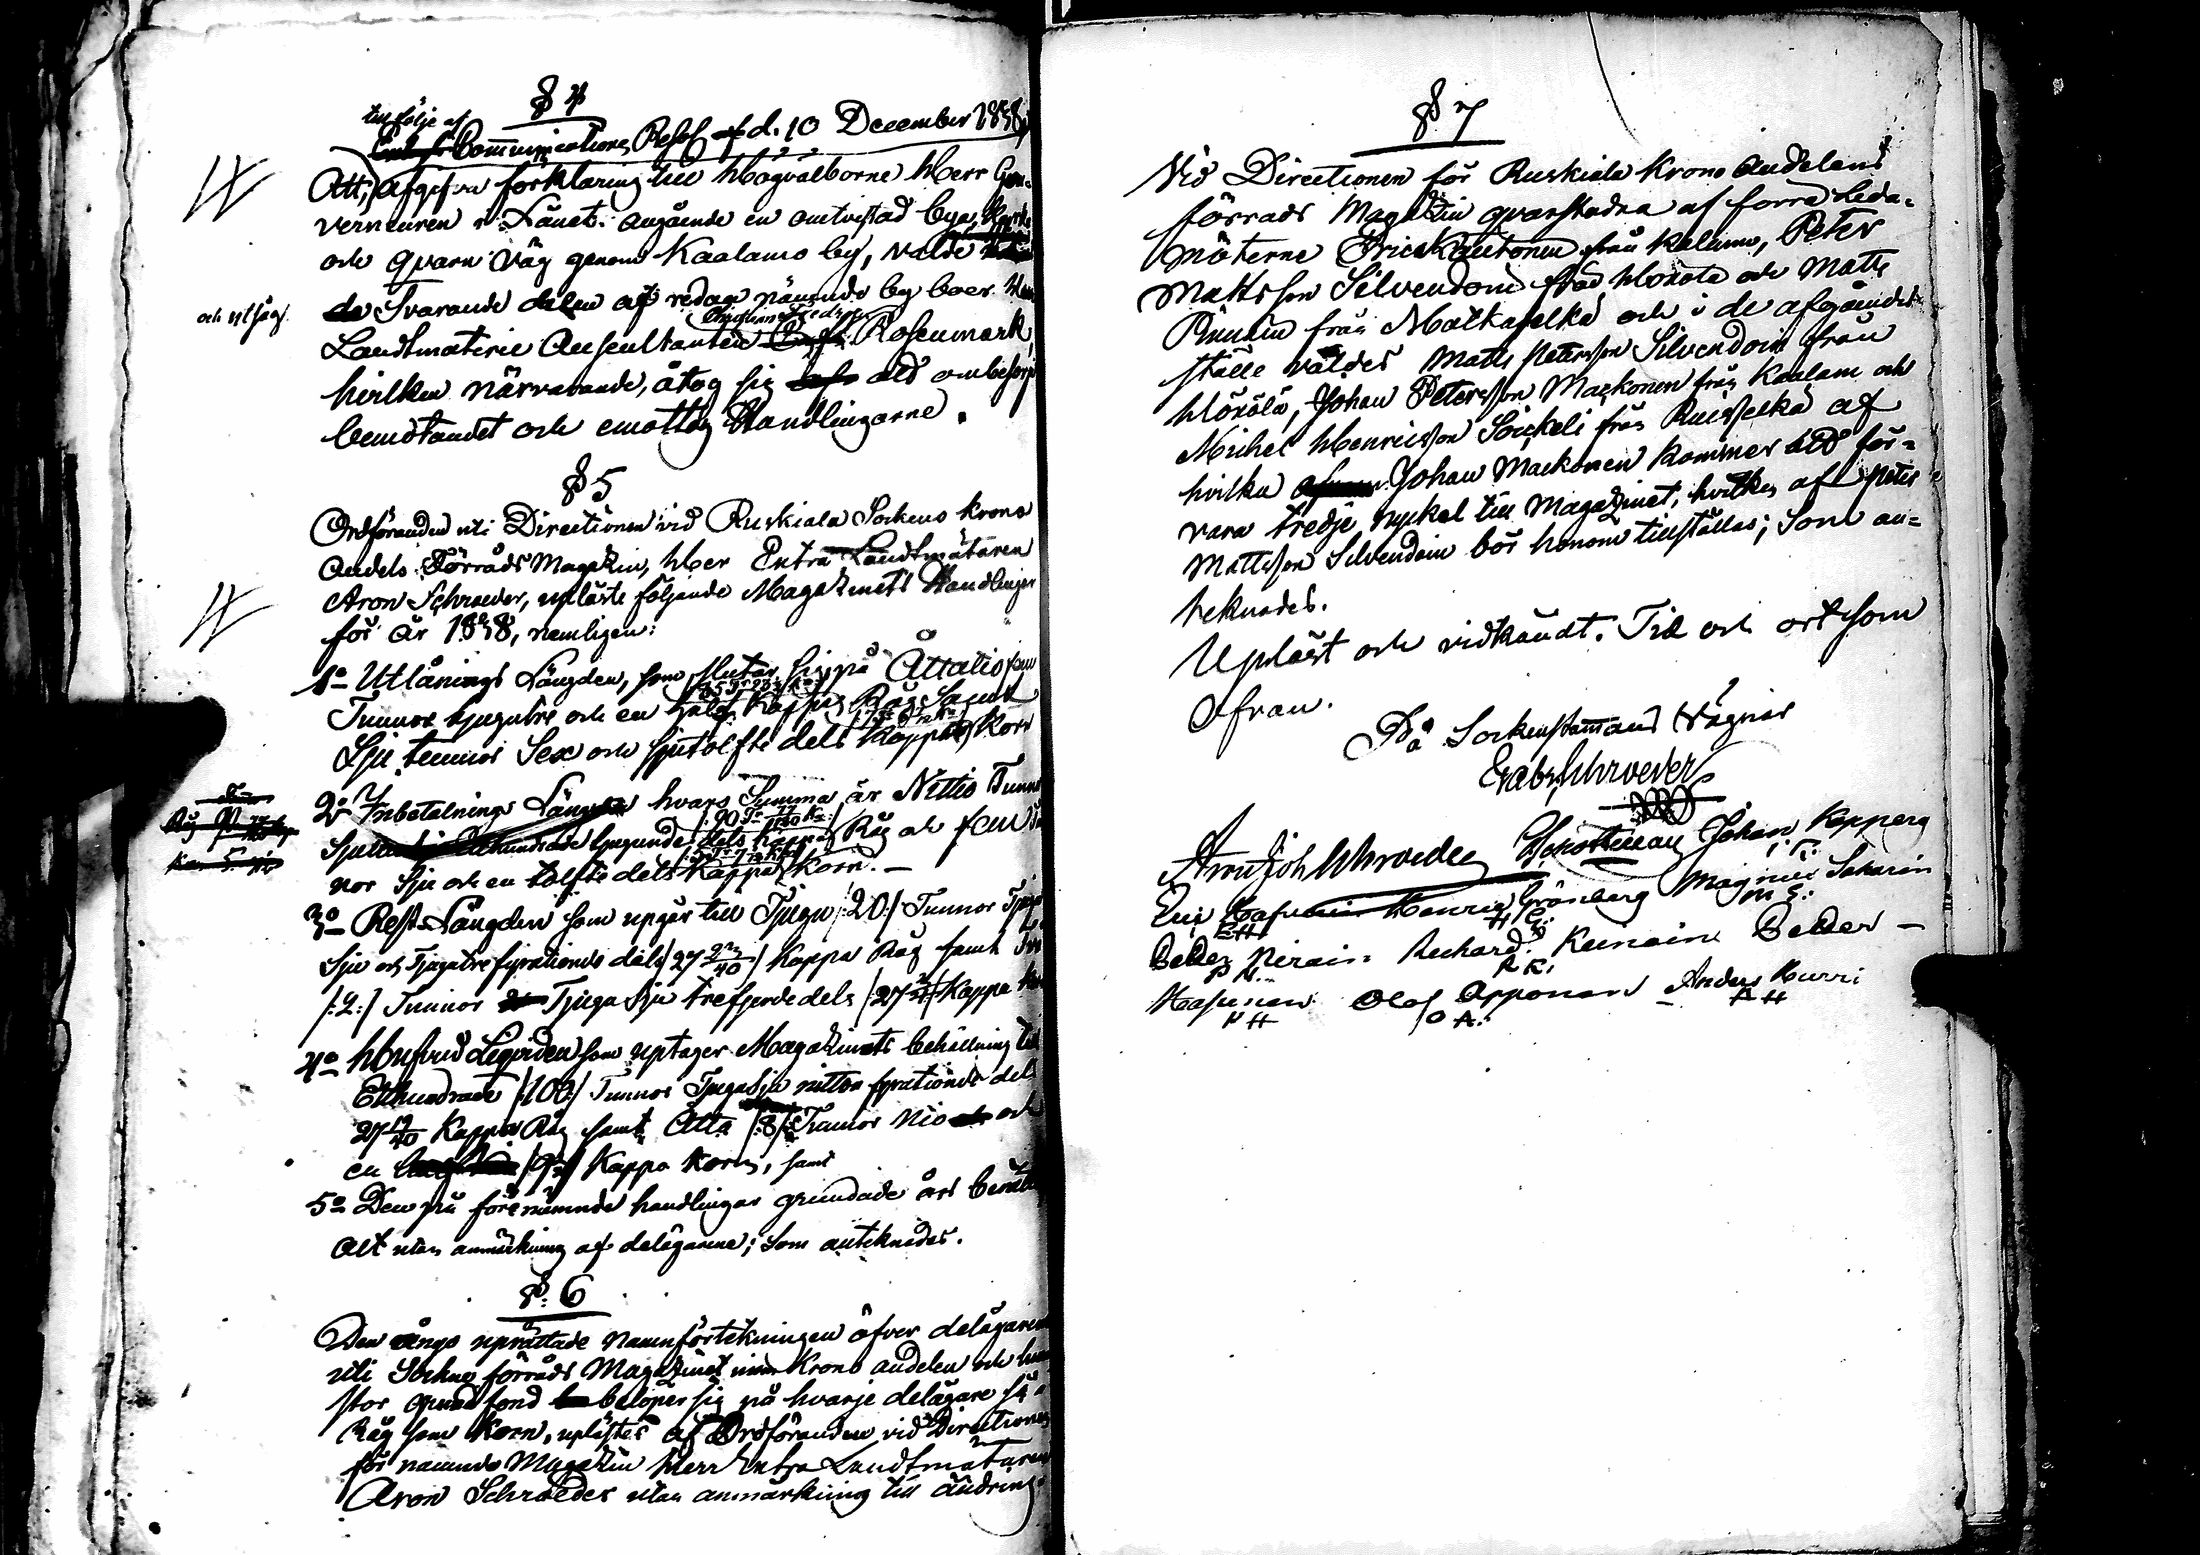 § 4
till följe af
Communications Resol. af d. 10 December 1858,
Att, afgifva förklaring till Högvälborne Herr Gou-
verneuren i Länet angående en omtvistad bya, Kyrko
och qvarn väg genom Kaalamo by, valde
de Svarande delen af redan nämnde by boer
och utsågs
Landtmäterie Auscultanten Rosenmark,
hvilken närvarande, åtog sig att ombesörja
bemötandet och emottog Handlingarne.
§ 5
Ordföranden uti Directionen vid Ruskiala Sockens Krono
Andels Förråds Magazin, Herr Extra Landtmätaren
Aron Schroeder, upläste följande Magazinets Handlingar
för år 1858, nemligen:
1o Utlånings Längden, som slutar sig på Åttatiofem
Tunnor tjugutre och en half Kappa Råg Samt
Sju tunnor Sex och sjutolfte dels Kappa Korn
2o Inbetalnings Längden hvars Summa är Nittio Tunnor
Sju Etthundrade tjugunde dels Kappa Råg och fem Tun
nor Sju och en tolfte dels Kappa Korn. —
3o Rest Längden som upgår till Tjugu /:20:/ Tunnor Tjugu
Sju och Tjugutre fyrationde dels /27 23/40/ Kappa Råg samt Två
/:2:/ Tunnor Tjuga Sju trefjerdedels /27 3/4/ Kappa Korn
4o Hufvud Liqviden som uptager Magazinets behållning till
Etthundrade /100:/ Tunnor Tjugasju nitton fyrationde dels
27 19/40 Kappa Råg samt Åtta /:8:/ Tunnor Nio och
en Kappa Korn, samt
5o Den på förenämnde handlingar grundade års berättelse
Alt utan anmärkning af delägarene; Som antecknades.
§: 6
Den ånyo uprättade Namnförtekningen öfver delägarene
uti Sockne förråds Magazinet Krono andelen och huru
stor grundfond belöper sig på hvarje delägare så i
Råg som Korn, uplästes af Ordföranden vid Directionen
för nämnde Magazin Herr Extra Landtmätaren
Aron Schroeder utan anmärkning till ändring.
§ 7
Vid Directionen för Ruskiala Krono Andelens
förråds Magazin qvarstadna af förra Leda-
möterne Eric Kautonen från Kalamo, Peter
Mattsson Silvendoin från Höxölä och Matts
från Matkaselkä och i de afgåendes
ställe valdes Matts Petersson Silvendoin från
Höxölä, Johan Petersson Markonen från Kaalam och
Michel Henricsson Soikeli från Ruisselkä af
hvilka Johan Markonen kommer att för-
vara tredje nyckel till Magazinet, hvilken af Peter
Mattsson Silvendoin bör honom tillställas; Som an-
teknades.
Upläst och vidkändt. Tid och ort som
Ofvan.
På Sockenstämmans Vägnar
Gabr. Schroeder
Aron Joh Schroeder Johan Kopperg
Eric Haapanen Henric Grönberg Magnus Saharin
E H H G: M S:
Petter Nirain. Rechard Keinain Petter —
P N. R K:
Haapanen Olof Apponen Anders Hurri
P H O A: A H